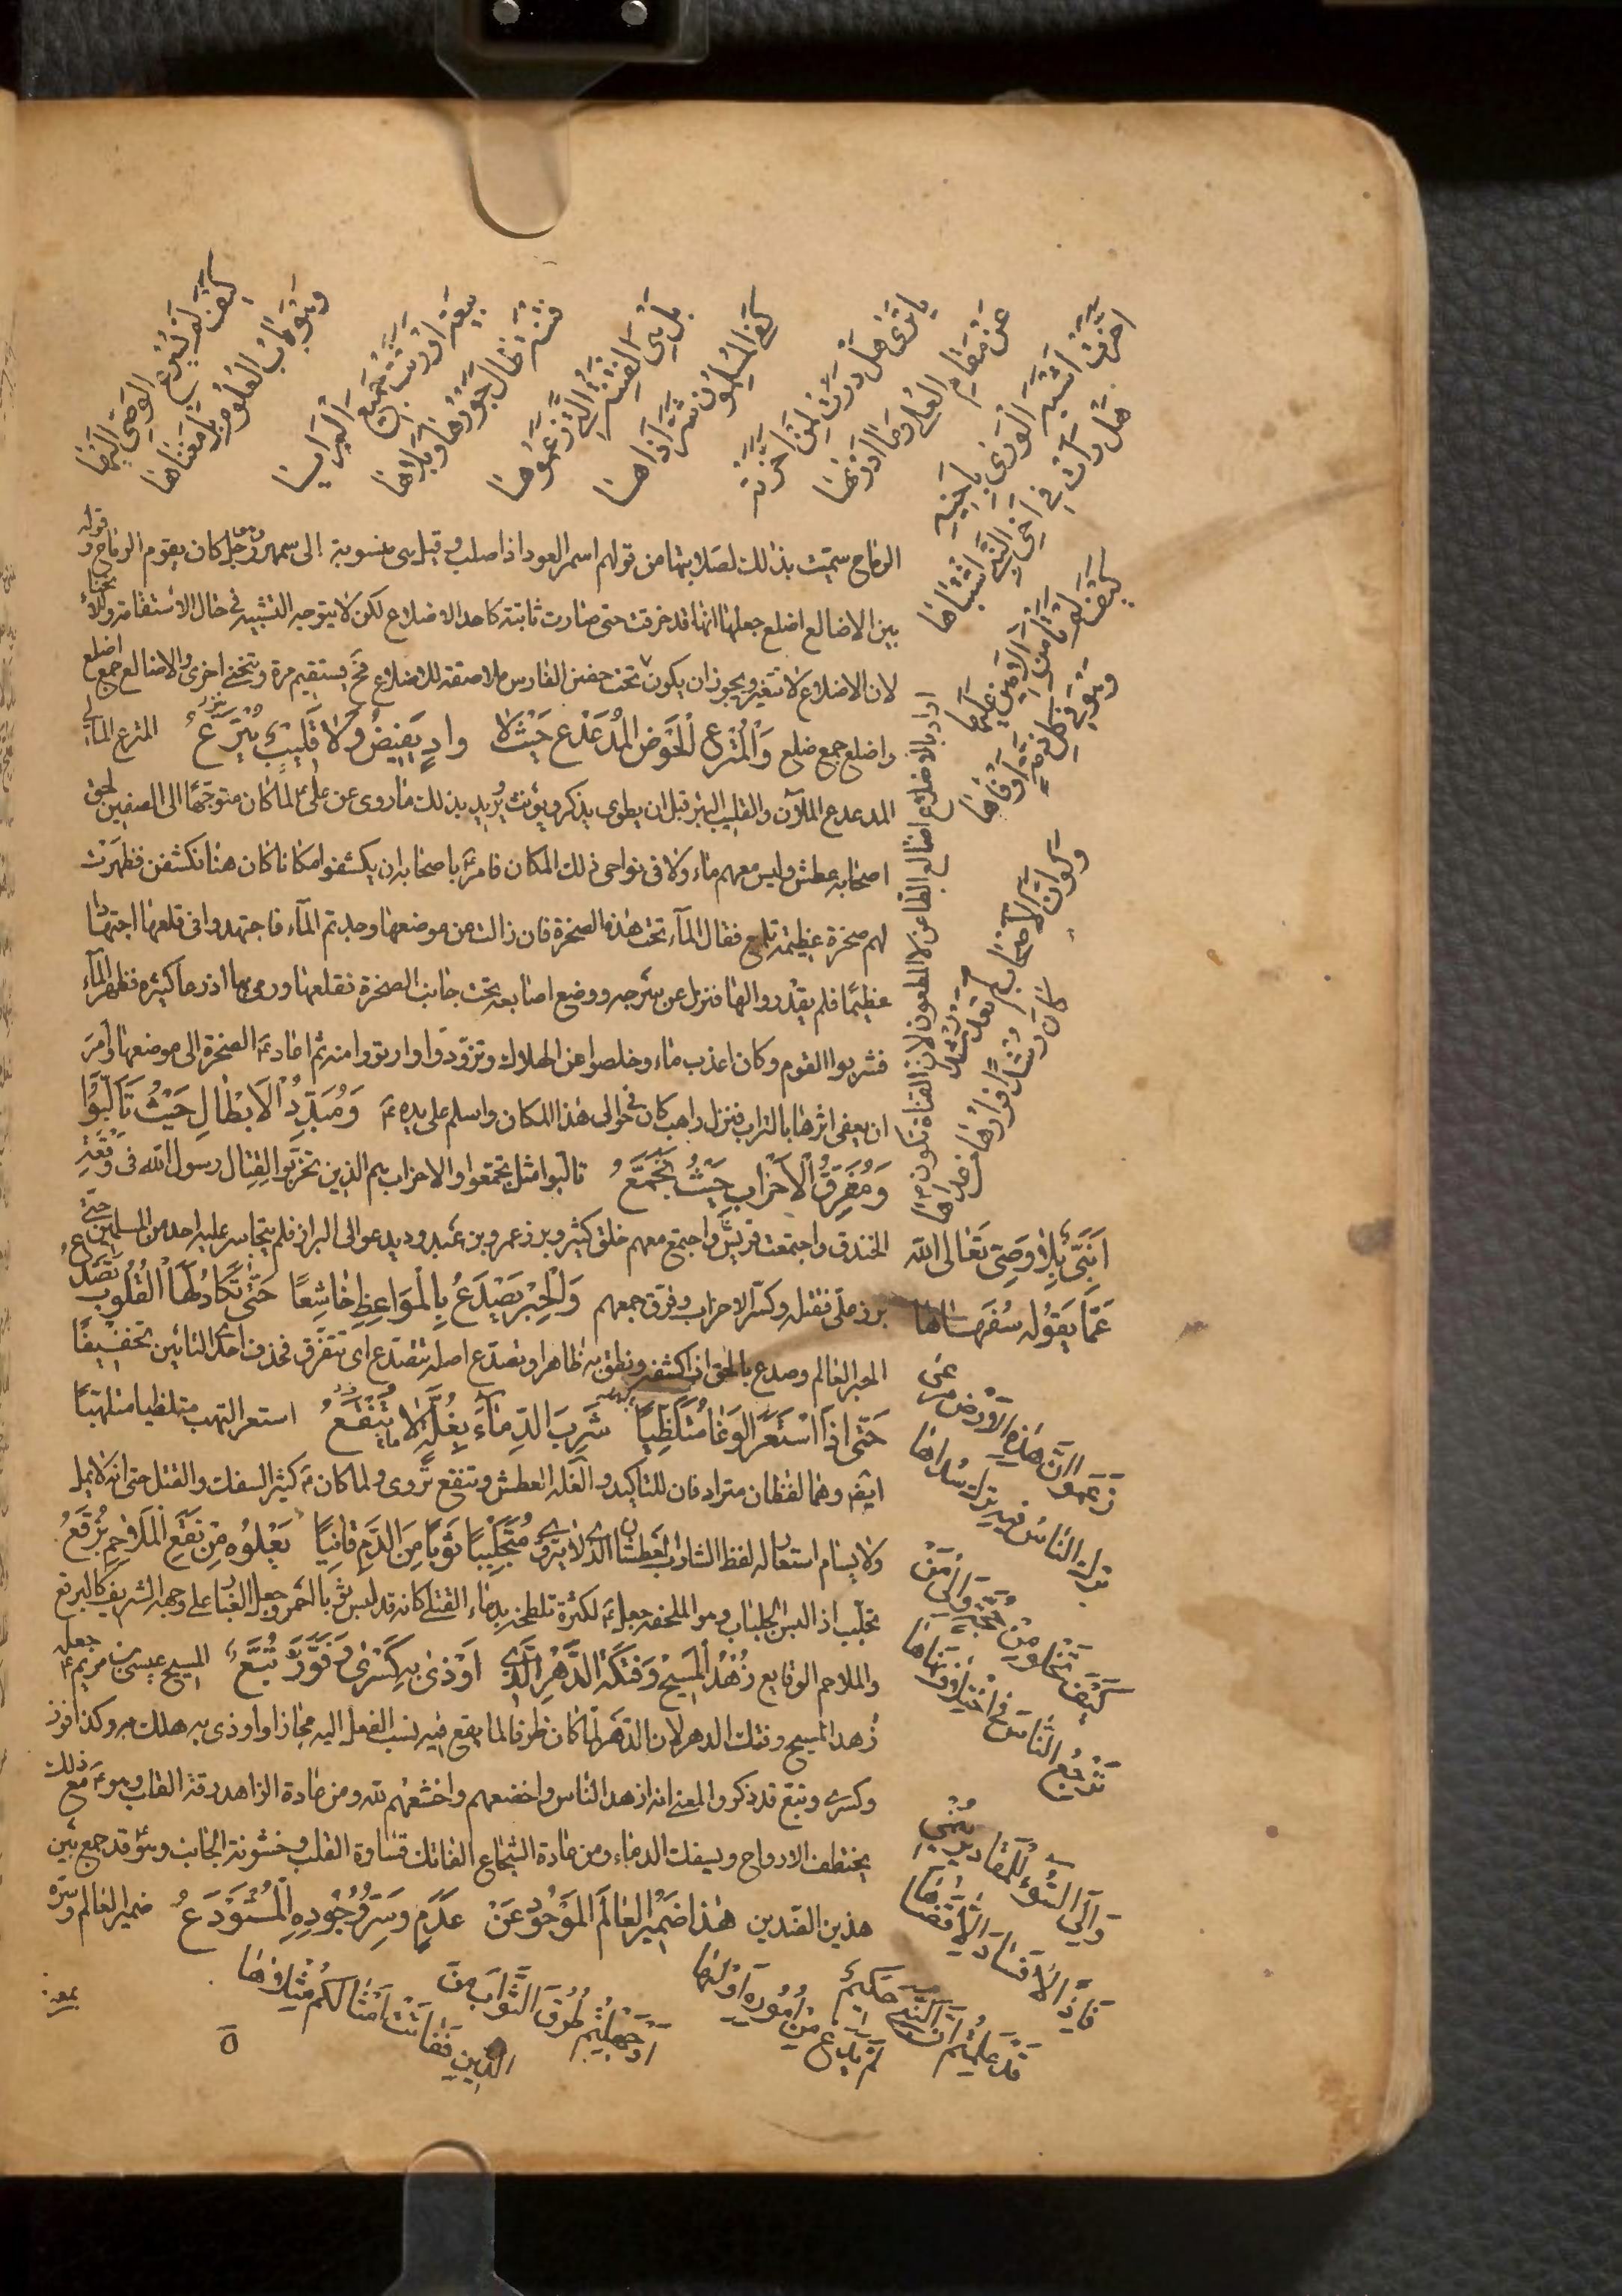 الرماح سميت بذلك لصلابتها من قولهم اسمهر العود اذا صلب وقيل هي منسوبة الى سمهر وهو رجل كان يقوم الرماح قوله
بين الاضالع اضلع جعلها انها قد خرقت حتى صارت ثابتة كاحد الاضلاع لكن لا يتوجه التشبيه في حال الاستقامة والانحناء
لان الاضلاع لا تتغير ويجوز ان يكون تحت حضن الفارس ملاصقة للاضلاع فتستقيم مرة وتنحني اخرى والاضالع جمع اضلع
واضلع جمع ضلع وَالْمُتْرِعِ الْحَوْضِ المُدَعْدَعِ حَيْثُ لَا وادٍ يَفِيضُ وَلَا قَلِيبٌ يُتْرَعُ المترع المالي
المدعدع الملآن والقليب البئر قبل ان يطوى يذكر ويؤنث يريد بذلك ما روى عن علي لما كان متوجها الى الصفين لحق
اصحابه عطش وليس معهم ماء ولا في نواحى ذلك المكان فامر باصحابه ان يكشفوا مكانا كان هنا فكشفن فظهرت
لهم صخرة عظيمة تلمع فقال الماء تحت هذه الصخرة فان زالت من موضعها وجدتم الماء فاجتهدوا في قلعها اجتهادا
عظيما فلم يقدروا لها فنزل عن سرجه ووضع اصابعه تحت جانب الصخرة فقلعها ورمى بها اذرعا كثيرة فظهر الماء
فشربوا القوم وكان اعذب ماء وخلصوا عن الهلاك وتزودوا وارتووا منه ثم اعاد الصخرة الى موضعها وامر
ان يعفى اثرها بالتراب فنزل راهب كان في حوالى هذا المكان واسلم على يده وَمُبَدِّدُ الْابْطَالِ حَيْثُ تَأَلَّبُوا
وَمُفَرِّقُ الْأَحْزَابِ حَيْثُ تَجَمَّعُ تالبوا مثل تجمعوا والاحزاب هم الذين تحزبوا لقتال رسول الله في وقعة
الخندق واجتمعت قريش واجتمع معهم خلق كثير وبرز عمرو بن عبد ود يدعو الى البراز فلم يتجاسر عليه احد من المسلمين حتى
برز على فقتله وكسر الاحزاب وفرق جمعهم وَالْحِبْرُ يَصْدَعُ بِالْمَوَاعِظِ خَاشِعًا حَتَّى تَكَادُ لَهَا الْقُلُوبُ تَصَدَّعُ
الحبر العالم وصدع بالحق اذا كشفه ونطق به ظاهرا وتصدع اصله تتصدع اى تتفرق فحذف احدى التائين تخفيفا
حَتَّى اذَا اسْتَعَرَ الوَغَا مُتَلَظِّيًا شَرِبَ الدِّمَاءَ بِغُلَّةٍ لَا تُنْقَعُ استعر التهب متلظيا متلهبا
ايضا وهما لفظان مترادفان للتاكيد والغلة العطش وتنقع تروى ولما كان كثير السفك والقتل حتى انه لا يمل
ولا يسام استعار له لفظ الشارب العطشان الذي لا يروى مُتَجَلْبِبًا ثَوْبًا مِنَ الدَّمِ قَانِيًا يَعْلُوهُ مِنْ نَقْعِ الْمَلَاحِمِ بُرْقَعُ
تجلبب اذا لبس الجلباب وهو الملحفة جعل لكثرة تلطخه بدماء القتلى كانه قد لبس ثوبا احمر وجعل الغبار على وجهه الشريف كالبرقع
والملاحم الوقايع زُهْدُ الْمَسِيحِ وَفَتْكَةُ الدَّهْرِ الَّذِي اوْدٰى بِهِ كِسْرٰى وَفَوَّزَ تُبَّعُ المسيح عيسى بن مريم جعله
زهد المسيح وفتك الدهر لان الدهر لما كان ظرفا لما يقع فيه نسب الفعل اليه مجازا واودى به هلك به وكذا فوز
وكسرى وتبع قد ذكر والمعنى انه ازهد الناس واخضعهم واخشعهم لله ومن عادة الزاهد رقة القلب وهو مع ذلك
يختطف الارواح ويسفك الدماء ومن عادة الشجاع الفاتك قساوة القلب وخشونة الجانب وهو قد جمع بين
هذين الضدين هٰذَا ضَمِيرُ الْعَالَمِ الْمَوْجُودِ عَنْ عَدَمٍ وَسِرُّ وُجُودِهِ الْمُسْتَوْدَعُ ضمير العالم وسره
اراد بالاضلاع اضالع الطاعن لا المطعون لان القناة تكون
كيف لم يسرع الوصي اليها
وهو باب العلوم بل معناها
بيعة اورثت جميع البرايا
فتنة طال جورها وبلاها
بل هي الفتنة التي زعموها
كفى المسلمون شر اذاها
يا ترى هل درت لمن اخرته
عن مقام العلى وما ادراها
اخرت اشبه الورى باخيه
هل رأت في اخي النبي اشتباها
كيف لم تأمن الامين عليها
انبي بلا وصي تعالى الله
عما يقوله سفهاها
زعموا ان هذه الارض مرعى
ترك الناس فيه ترك سداها
كيف تخلو من حجة والى من
ترجع الناس في اختلاف نهاها
قد علمتم ان النبي حكيم
لم يدع من اموره اولاها
ام جهلتم طرق الثواب من
الدين ففاتت امثالكم مثلاها